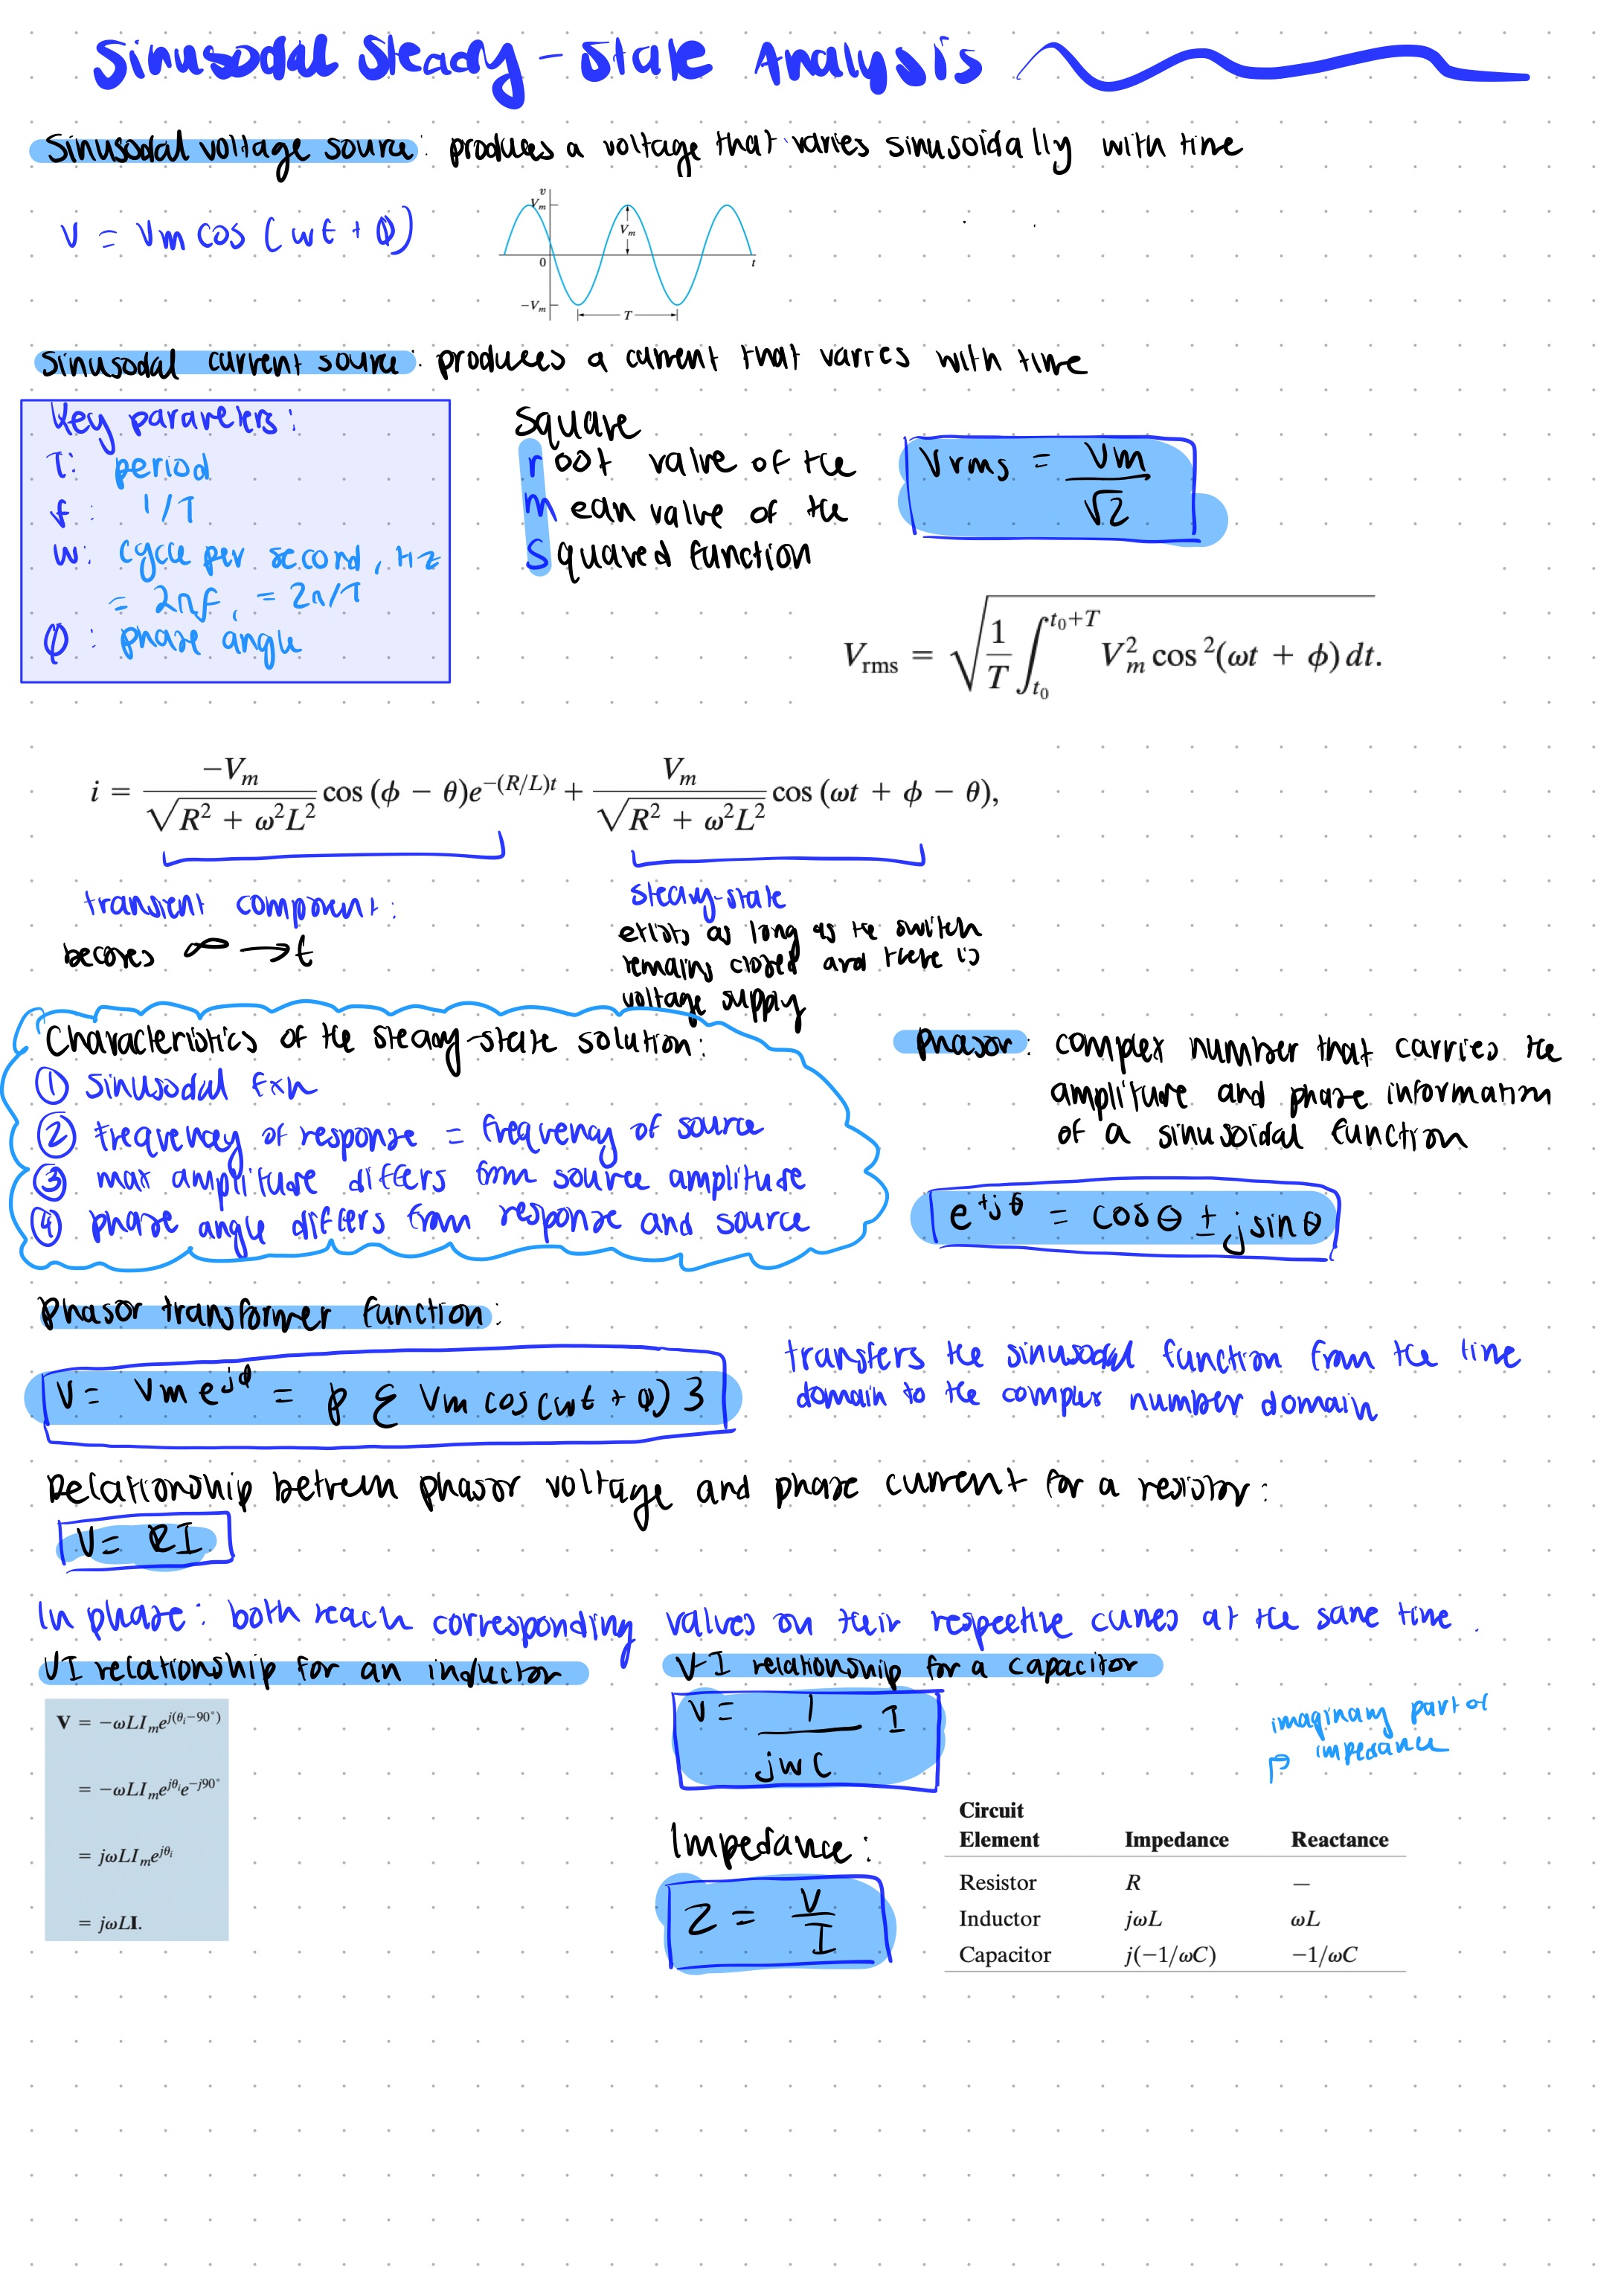 Sinusodal Steady-State Analysis
Sinusodal voltage source: produces a voltage that varies sinusoidally with time
V = Vm cos (wt + φ)
v
Vm
Vm
0
t
−Vm
T
Sinusodal current source: produces a current that varies with time
Key parameters:
T: period
f: 1/T
w: cycle per second, Hz
= 2πf, = 2π/T
φ: phase angle
Square
root value of the
mean value of the
Squared function
Vrms = Vm/√2
Vrms = √(1/T ∫_{t0}^{t0+T} V²m cos²(ωt + ϕ) dt.
i = −Vm/√(R² + ω²L²) cos (ϕ − θ)e^−(R/L)t + Vm/√(R² + ω²L²) cos (ωt + ϕ − θ),
transient component:
becomes ∞ → t
steady-state
exists as long as the switch
remains closed and there is
voltage supply
Characteristics of the steady-state solution:
① sinusodal fxn
② frequency of response = frequency of source
③ max amplitude differs from source amplitude
④ phase angle differs from response and source
Phasor: complex number that carries the
amplitude and phase information
of a sinusoidal function
e^+jθ = cosθ ± jsinθ
Phasor transformer function:
V = Vm e^jφ = P { Vm cos(wt + φ) }
transfers the sinusodal function from the time
domain to the complex number domain
Relationship between phasor voltage and phase current for a resistor:
V = RI
In phase: both reach corresponding values on their respective curves at the same time.
VI relationship for an inductor
V = −ωLIm e^j(θi−90°)
= −ωLIm e^jθi e^−j90°
= jωLIm e^jθi
= jωLI.
V-I relationship for a capacitor
V = 1/jwC I
Impedance:
Z = V/I
imaginary part of
impedance
Circuit
Element Impedance Reactance
Resistor R —
Inductor jωL ωL
Capacitor j(−1/ωC) −1/ωC